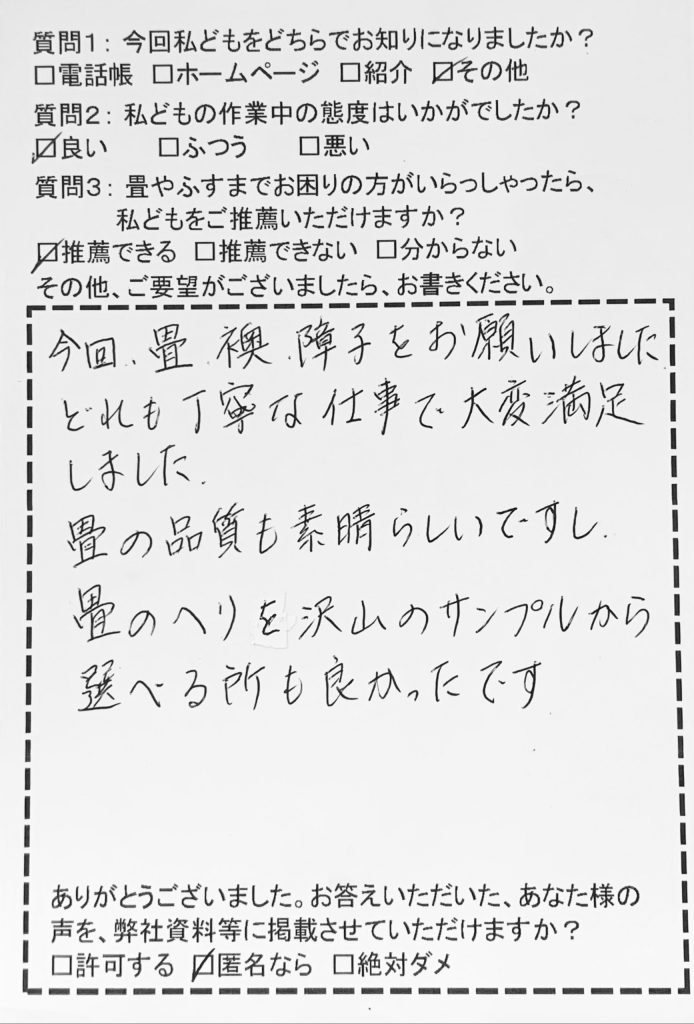 質問１：今回私どもをどちらでお知りになりましたか？
□電話帳 □ホームページ □紹介 ☑その他
質問２：私どもの作業中の態度はいかがでしたか？
☑良い □ふつう □悪い
質問３：畳やふすまでお困りの方がいらっしゃったら、
私どもをご推薦いただけますか？
☑推薦できる □推薦できない □分からない
その他、ご要望がございましたら、お書きください。
今回、畳、襖、障子をお願いしました
どれも丁寧な仕事で大変満足
しました.
畳の品質も素晴らしいですし.
畳のヘリを沢山のサンプルから
選べる所も良かったです
ありがとうございました。お答えいただいた、あなた様の
声を、弊社資料等に掲載させていただけますか？
□許可する ☑匿名なら □絶対ダメ